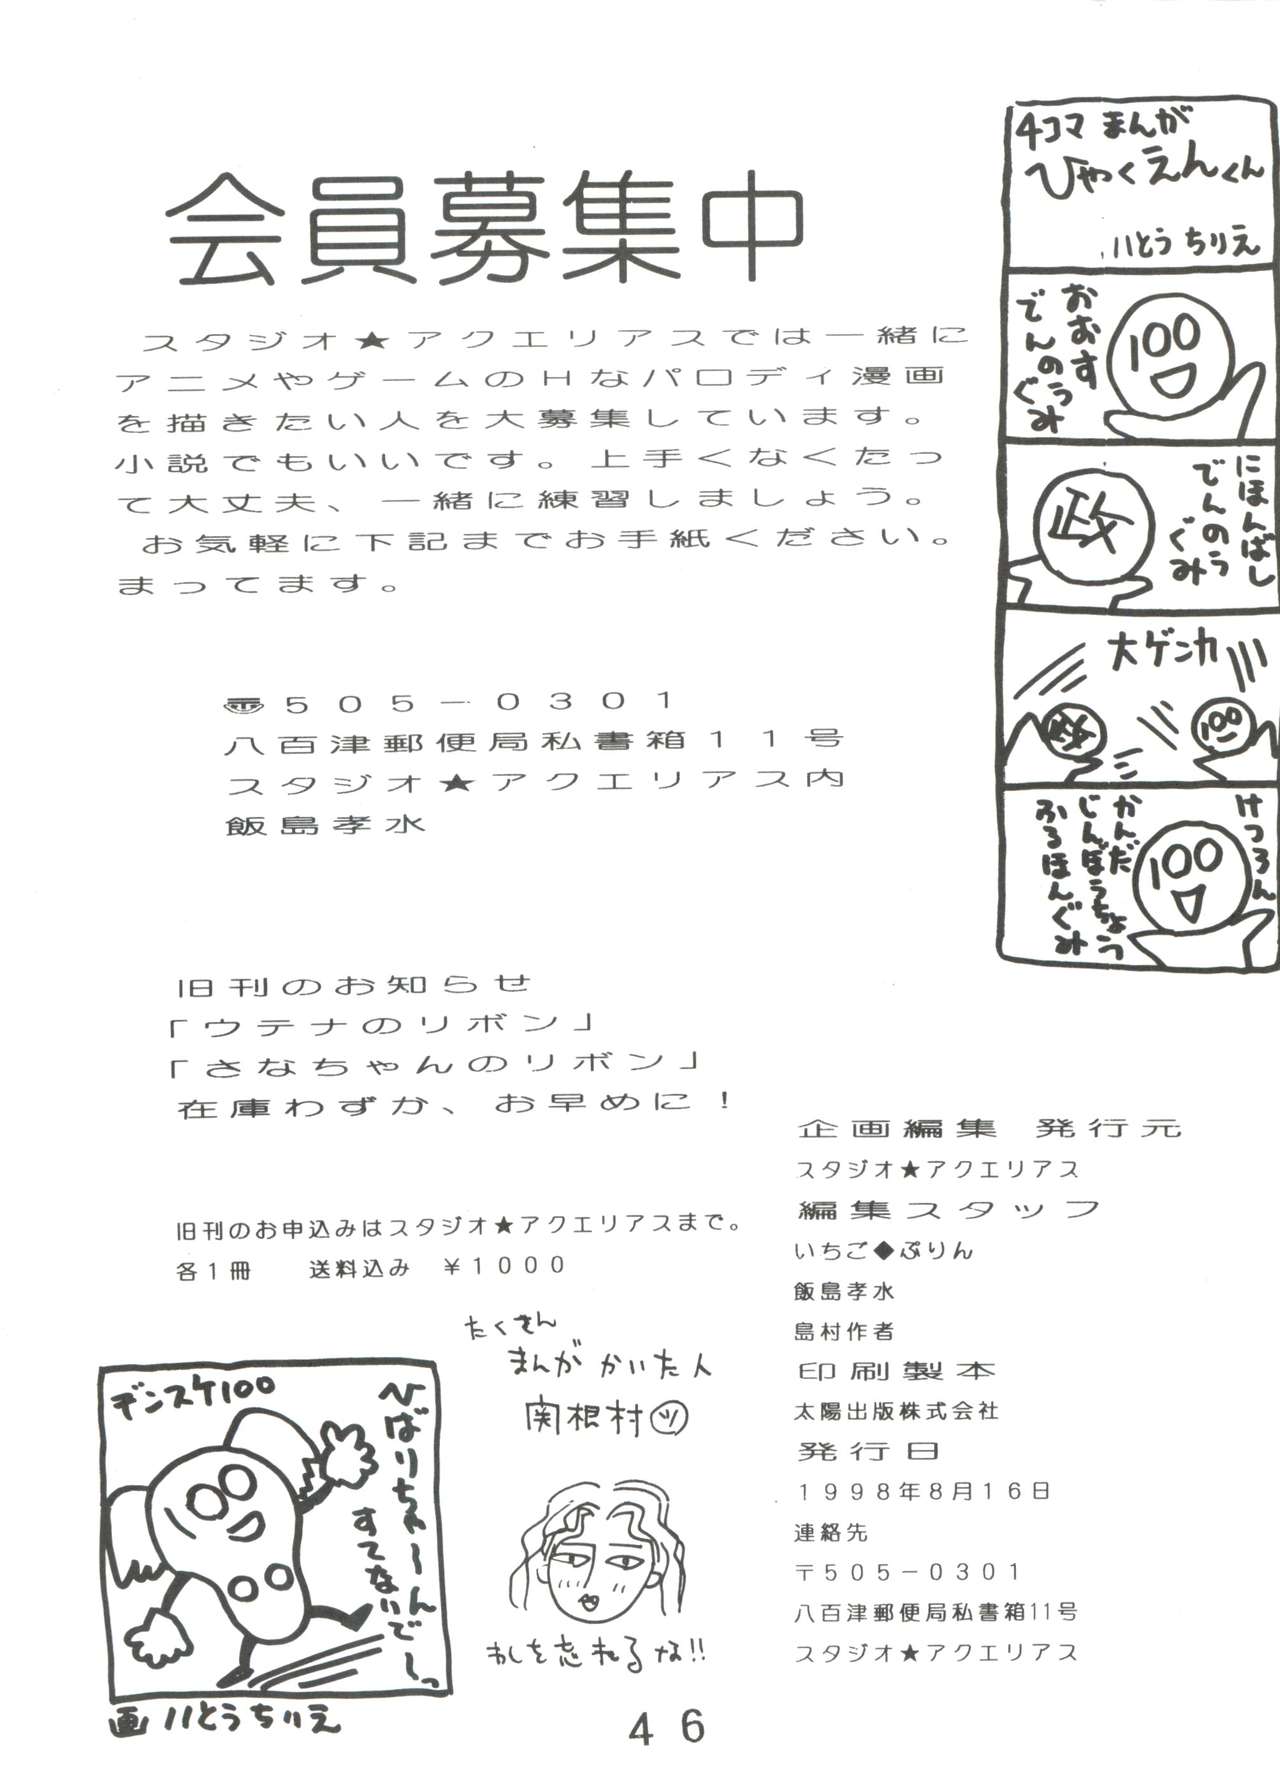 会員募集中
スタジオ★アクエリアスでは一緒に
アニメやゲームのHなパロディ漫画
を描きたい人を大募集しています。
小説でもいいです。上手くなくたっ
て大丈夫、一緒に練習しましょう。
お気軽に下記までお手紙ください。
まってます。
〠505-0301
八百津郵便局私書箱11号
スタジオ★アクエリアス内
飯島孝水
4コマ まんが
ひゃくえんくん
いとうちりえ
おおす
でんのうぐみ
にほんばし
でんのうぐみ
大ゲンカ
けつろん
かんだ
じんぼうちょう
ふるほんぐみ
旧刊のお知らせ
「ウテナのリボン」
「さなちゃんのリボン」
在庫わずか、お早めに!
旧刊のお申込みはスタジオ★アクエリアスまで。
各1冊 送料込み ¥1000
企画編集 発行元
スタジオ★アクエリアス
編集スタッフ
いちご◆ぷりん
飯島孝水
島村作者
印刷製本
太陽出版株式会社
発行日
1998年8月16日
連絡先
〒505-0301
八百津郵便局私書箱11号
スタジオ★アクエリアス
たくさん
まんが かいた人
関根村ツ
わしを忘れるな!!
デンスケ100
ひばりちゃーん
すてないでーっ
画 いとうちりえ
46